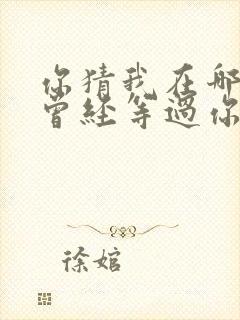 你猜我在哪
曾经等过你
徐婠